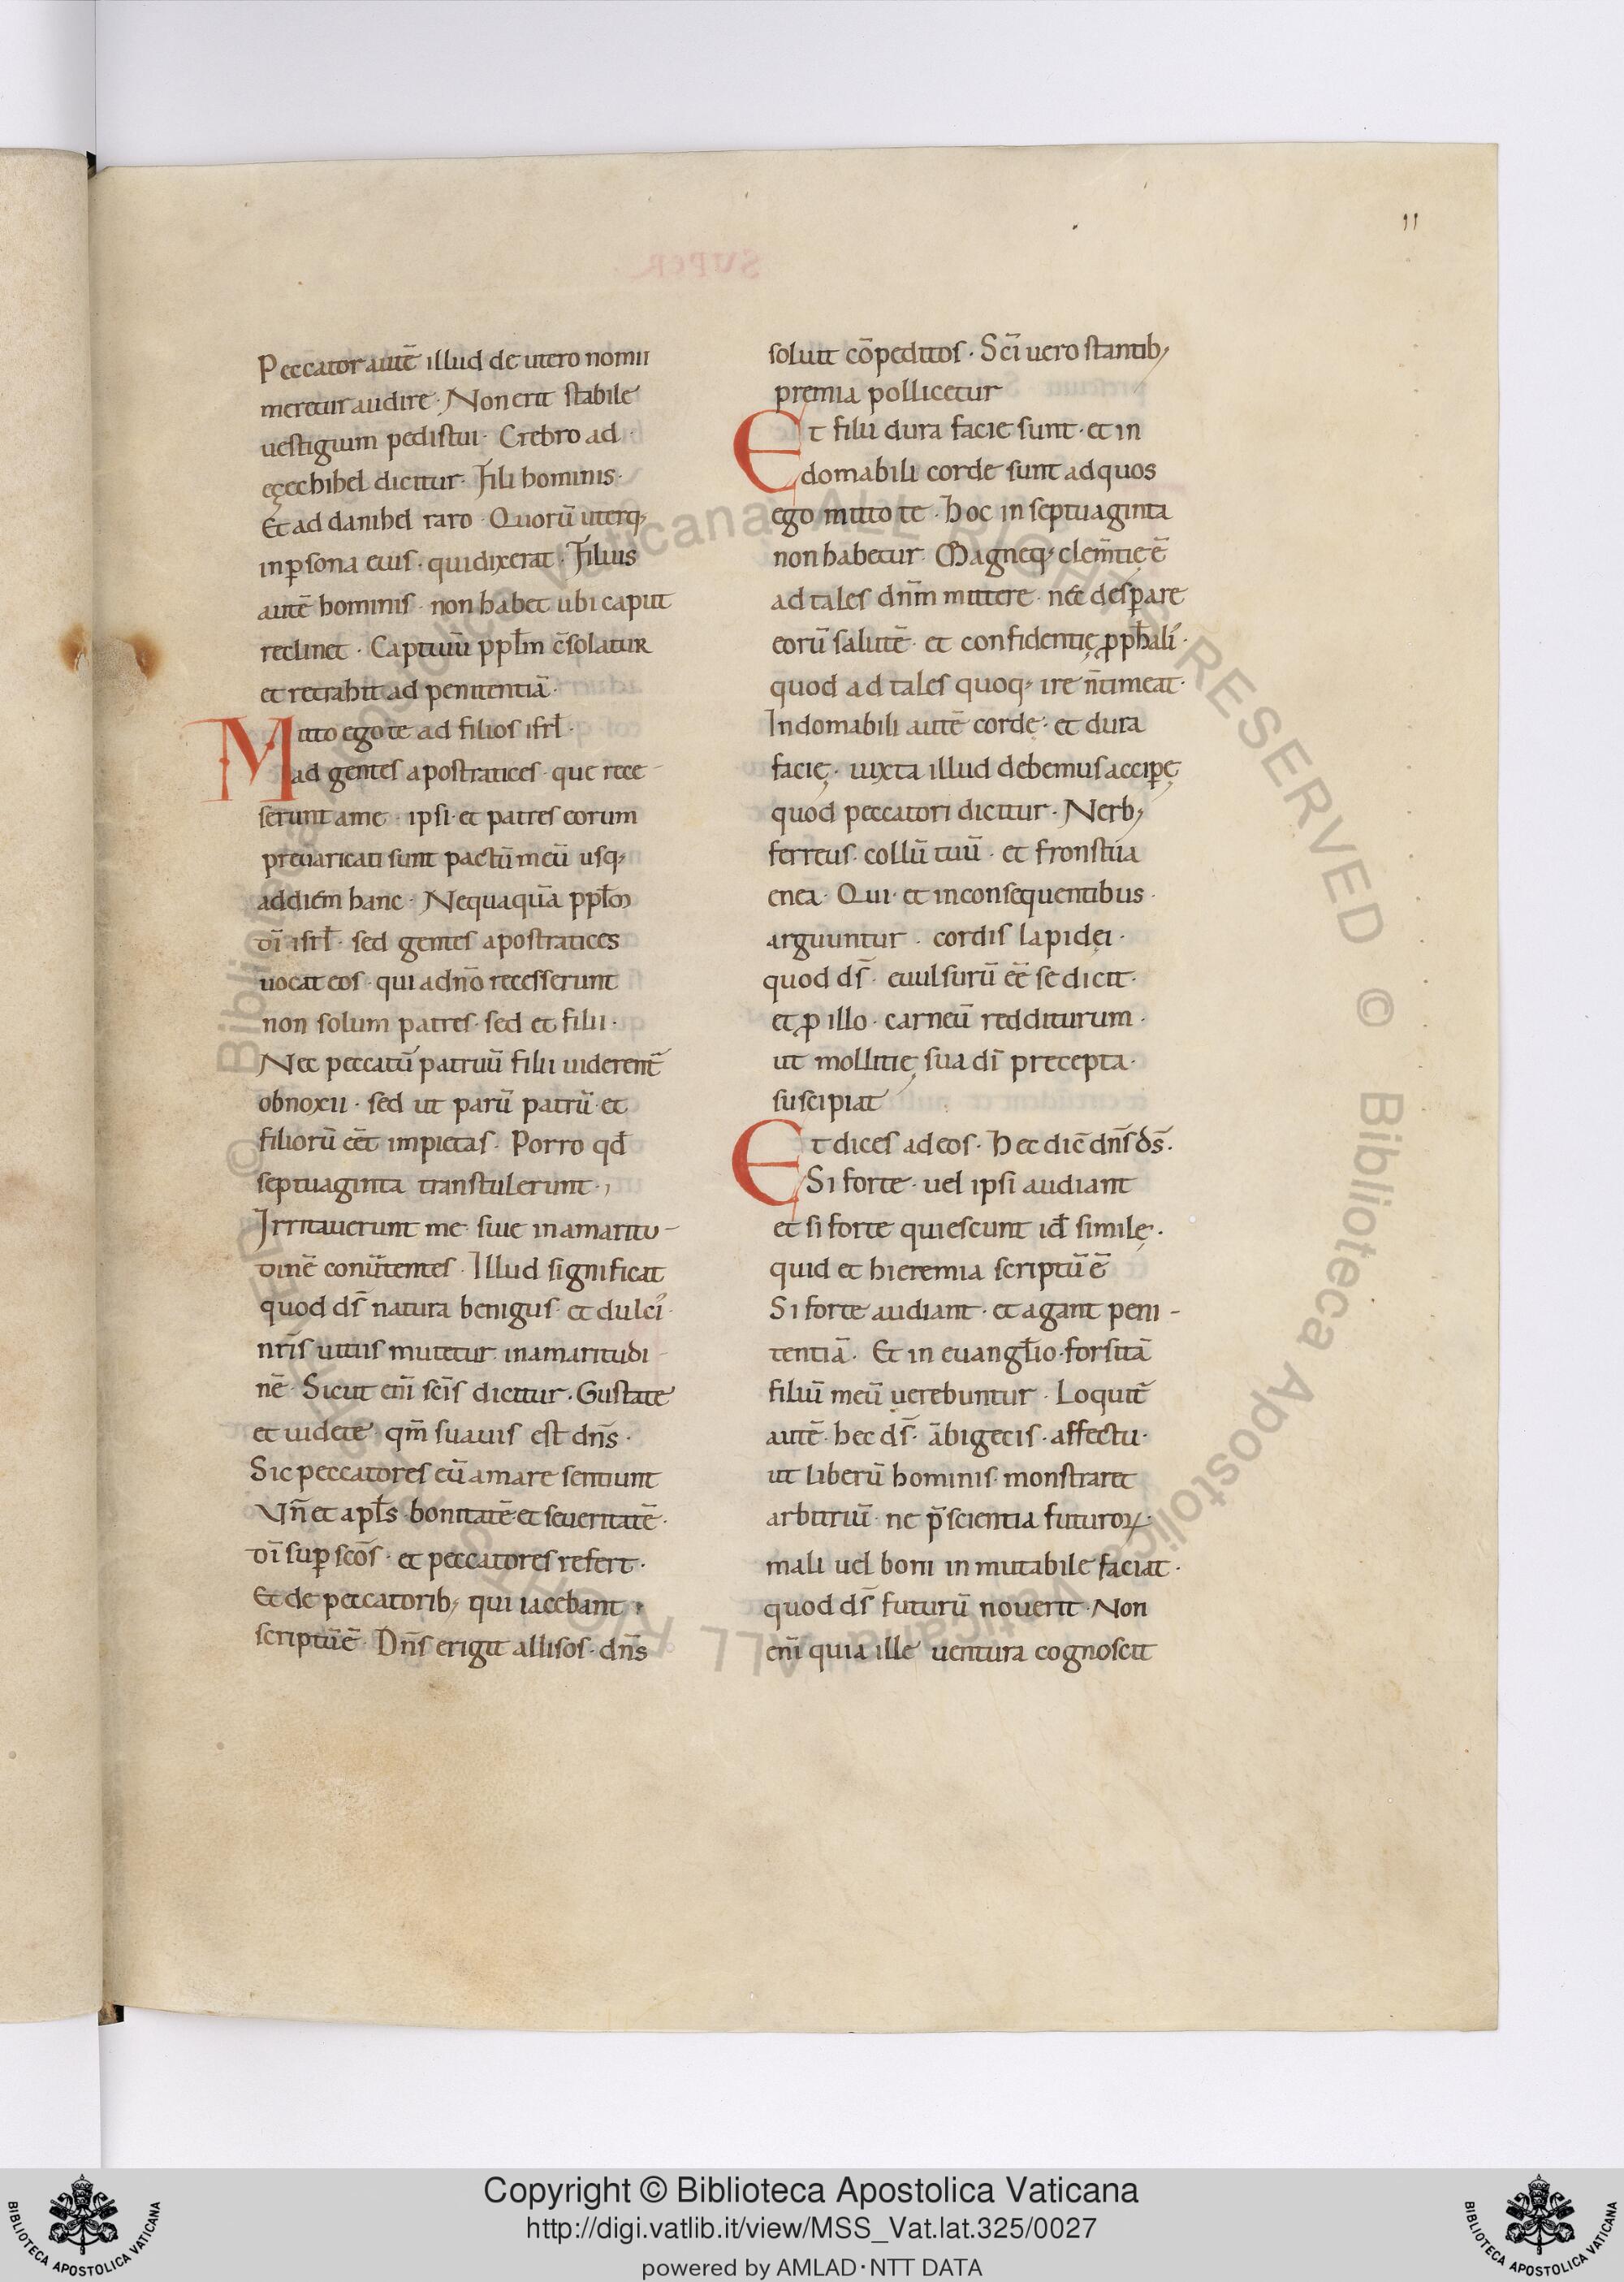 11
SUPER
Peccator autē illud de utero nomii
meretur audire · Non erit stabile
uestigium pedis tui · Crebro ad
ęzechihel dicitur · Fili hominis ·
Et ad danihel raro · Quorū uterq;
in p̲sona eius · qui dixerat · Filius
autē hominis · non habet ubi caput
reclinet · Captiuū ppl̄m c̄solatur
et retrahit ad penitentiā ·
Mitto ego te ad filios isrl̄ ·
ad gentes apostratices · que rece-
serunt a me · ipsi · et patres eorum
preuaricati sunt pactū meū usq;
ad diem hanc · Nequaquā ppl̄m
dī isrl̄ · sed gentes apostratices
uocat eos · qui a dn̄o recesserunt
non solum patres · sed et filii ·
Nec peccatū patruū filii uiderent̄
obnoxii · sed ut parū patrū · et
filiorū eēt impietas · Porro qd̄
septuaginta transtulerunt ·
Irritauerunt me · siue in amaritu-
dinē conūtentes · Illud significat
quod ds̄ natura benigus · et dulci᷒ ·
nr̄is uitiis mutetur in amaritudi-
nē · Sicut enī sc̄is dicitur · Gustate
et uidete · qm̄ suauis est dn̄s ·
Sic peccatores eū amare sentiunt
Vn̄ et apl̄s bonitatē · et seueritatē ·
dī sup̲ scōs · et peccatores refert ·
Et de peccatorib; qui iacebant ·
scriptū ē · Dn̄s erigit allisos · dn̄s
soluit cō̄peditos · Sc̄i uero stantib;
premia pollicetur
Et filii dura facie sunt · et in
domabili corde sunt ad quos
ego mitto te · Hoc in septuaginta
non habetur · Magneq; clem̄tię ē
ad tales dn̄m mittere · nec desp̲are
eorū salutē · et confidentię p̲pḣali᷒ ·
quod ad tales quoq; ire n̄ timeat ·
Indomabili autē cordę · et dura
facię · iuxta illud debemus accip̲ę
quod peccatori dicitur · Nerb;
ferreus · collū tuū · et frons tua
enea · Qui · et in consequentibus ·
arguuntur · cordis lapidęi ·
quod ds̄ · euulsurū eē se dicit ·
et p̲ illo · carneū redditurum ·
ut mollitię sua dī precepta ·
suscipiat
Et dices ad eos · Hec dic̄ dn̄s ds̄ ·
Si forte · uel ipsi audiant
et si forte quiescunt id̄ similę ·
quid et hieremia scriptū ē
Si forte audiant · et agant peni-
tentiā · Et in euangl̄io · forsitā
filiū meū uerebuntur · Loquit̄
autē · hec ds̄ · ābigecis · affectu ·
ut liberū hominis · monstraret
arbitriū · ne p̄scientia futuroꝝ ·
mali uel boni in mutabile faciat ·
quod ds̄ futurū nouerit · Non
enī quia ille uentura cognoscit
Copyright © Biblioteca Apostolica Vaticana
http://digi.vatlib.it/view/MSS_Vat.lat.325/0027
powered by AMLAD·NTT DATA
BIBLIOTECA APOSTOLICA VATICANA
BIBLIOTECA APOSTOLICA VATICANA
© Biblioteca Apostolica Vaticana ALL RIGHTS RESERVED © Biblioteca Apostolica Vaticana ALL RIGHTS RESERVED